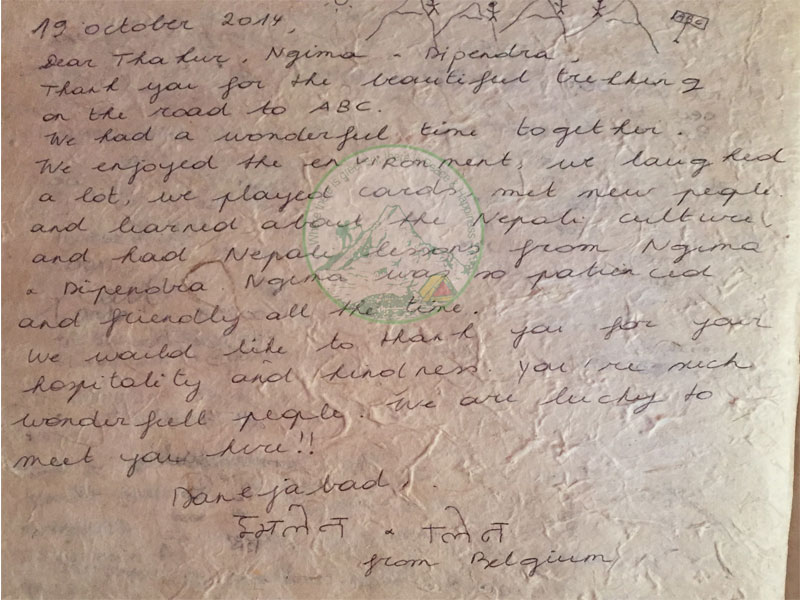 19 october 2014,
ABC
Dear Thakur, Ngima - Dipendra,
Thank you for the beautiful trekking
on the road to ABC.
We had a wonderful time together.
We enjoyed the environment, we laughed
a lot, we played cards, met new people
and learned about the Nepali culture,
and had Nepali lessons from Ngima
& Dipendra. Ngima was so patienced
and friendly all the time.
We would like to thank you for your
hospitality and kindness. You're such
wonderfull people. We are lucky to
meet you here!!
Danejabad,
&
from Belgium